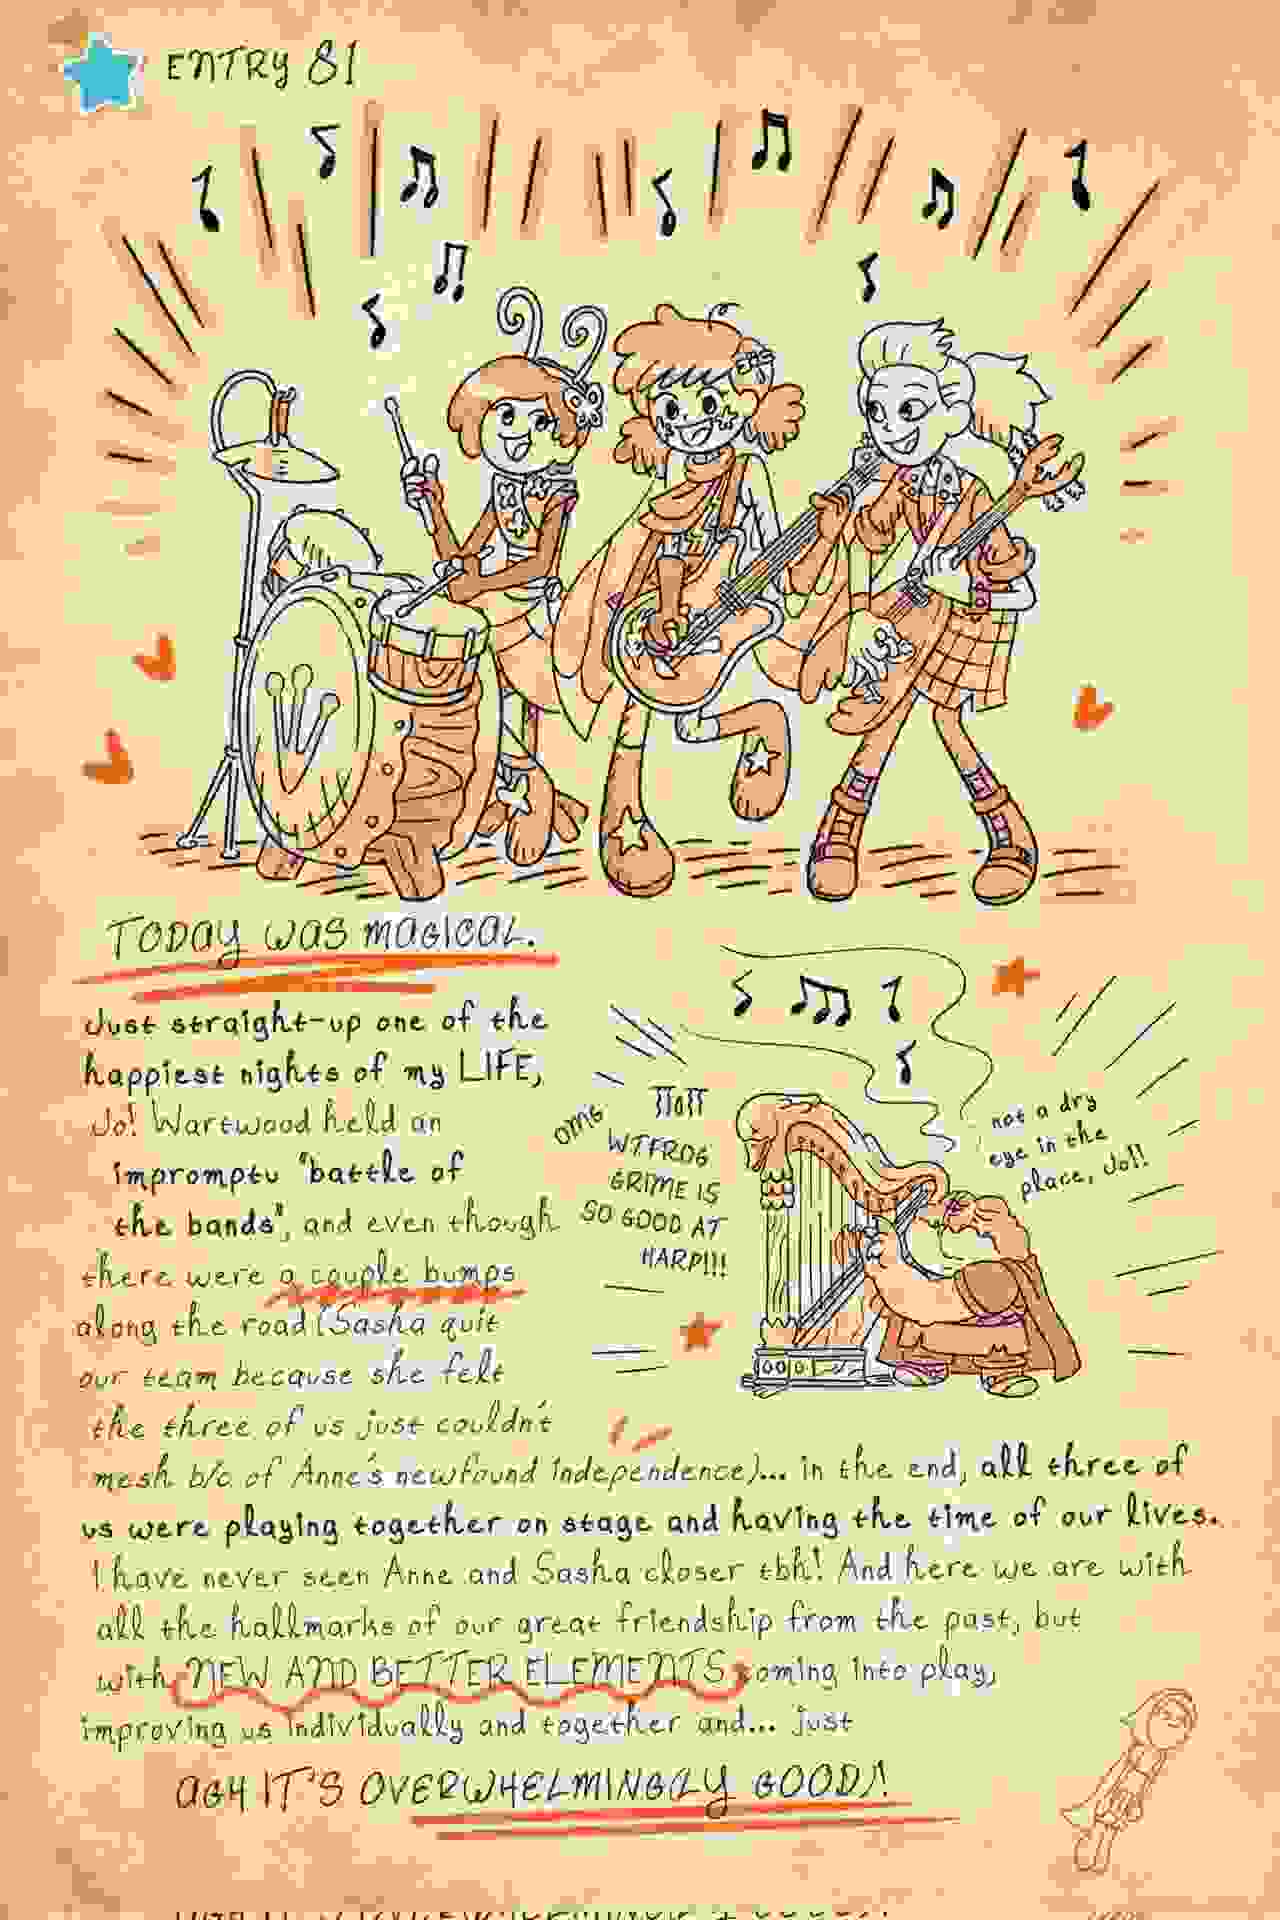 ENTRY 81
TODAY WAS MAGICAL.
Just straight-up one of the
happiest nights of my LIFE,
Jo! Wartwood held an
impromptu "battle of
the bands", and even though
there were a couple bumps
along the road (Sasha quit
our team because she felt
the three of us just couldn't
mesh b/c of Anne's newfound independence)... in the end, all three of
us were playing together on stage and having the time of our lives.
I have never seen Anne and Sasha closer tbh! And here we are with
all the hallmarks of our great friendship from the past, but
with NEW AND BETTER ELEMENTS coming into play,
improving us individually and together and... just
AGH IT'S OVERWHELMINGLY GOOD!
OMG
WTFROG
GRIME IS
SO GOOD AT
HARP!!!
not a dry
eye in the
place, Jo!!